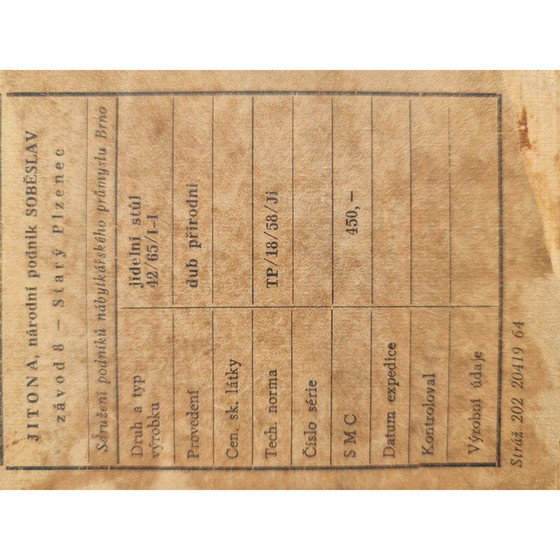 JITONA, národní podnik SOBĚSLAV
závod 8 – Starý Plzenec
Sdružení podniků nábytkářského průmyslu Brno
Druh a typ výrobku jídelní stůl 42/65/1-I
Provedení dub přírodní
Cen. sk. látky
Tech. norma TP/18/58/Ji
Číslo série
SMC 450,–
Datum expedice
Kontroloval
Výrobní údaje
Stráž 202 20419 64